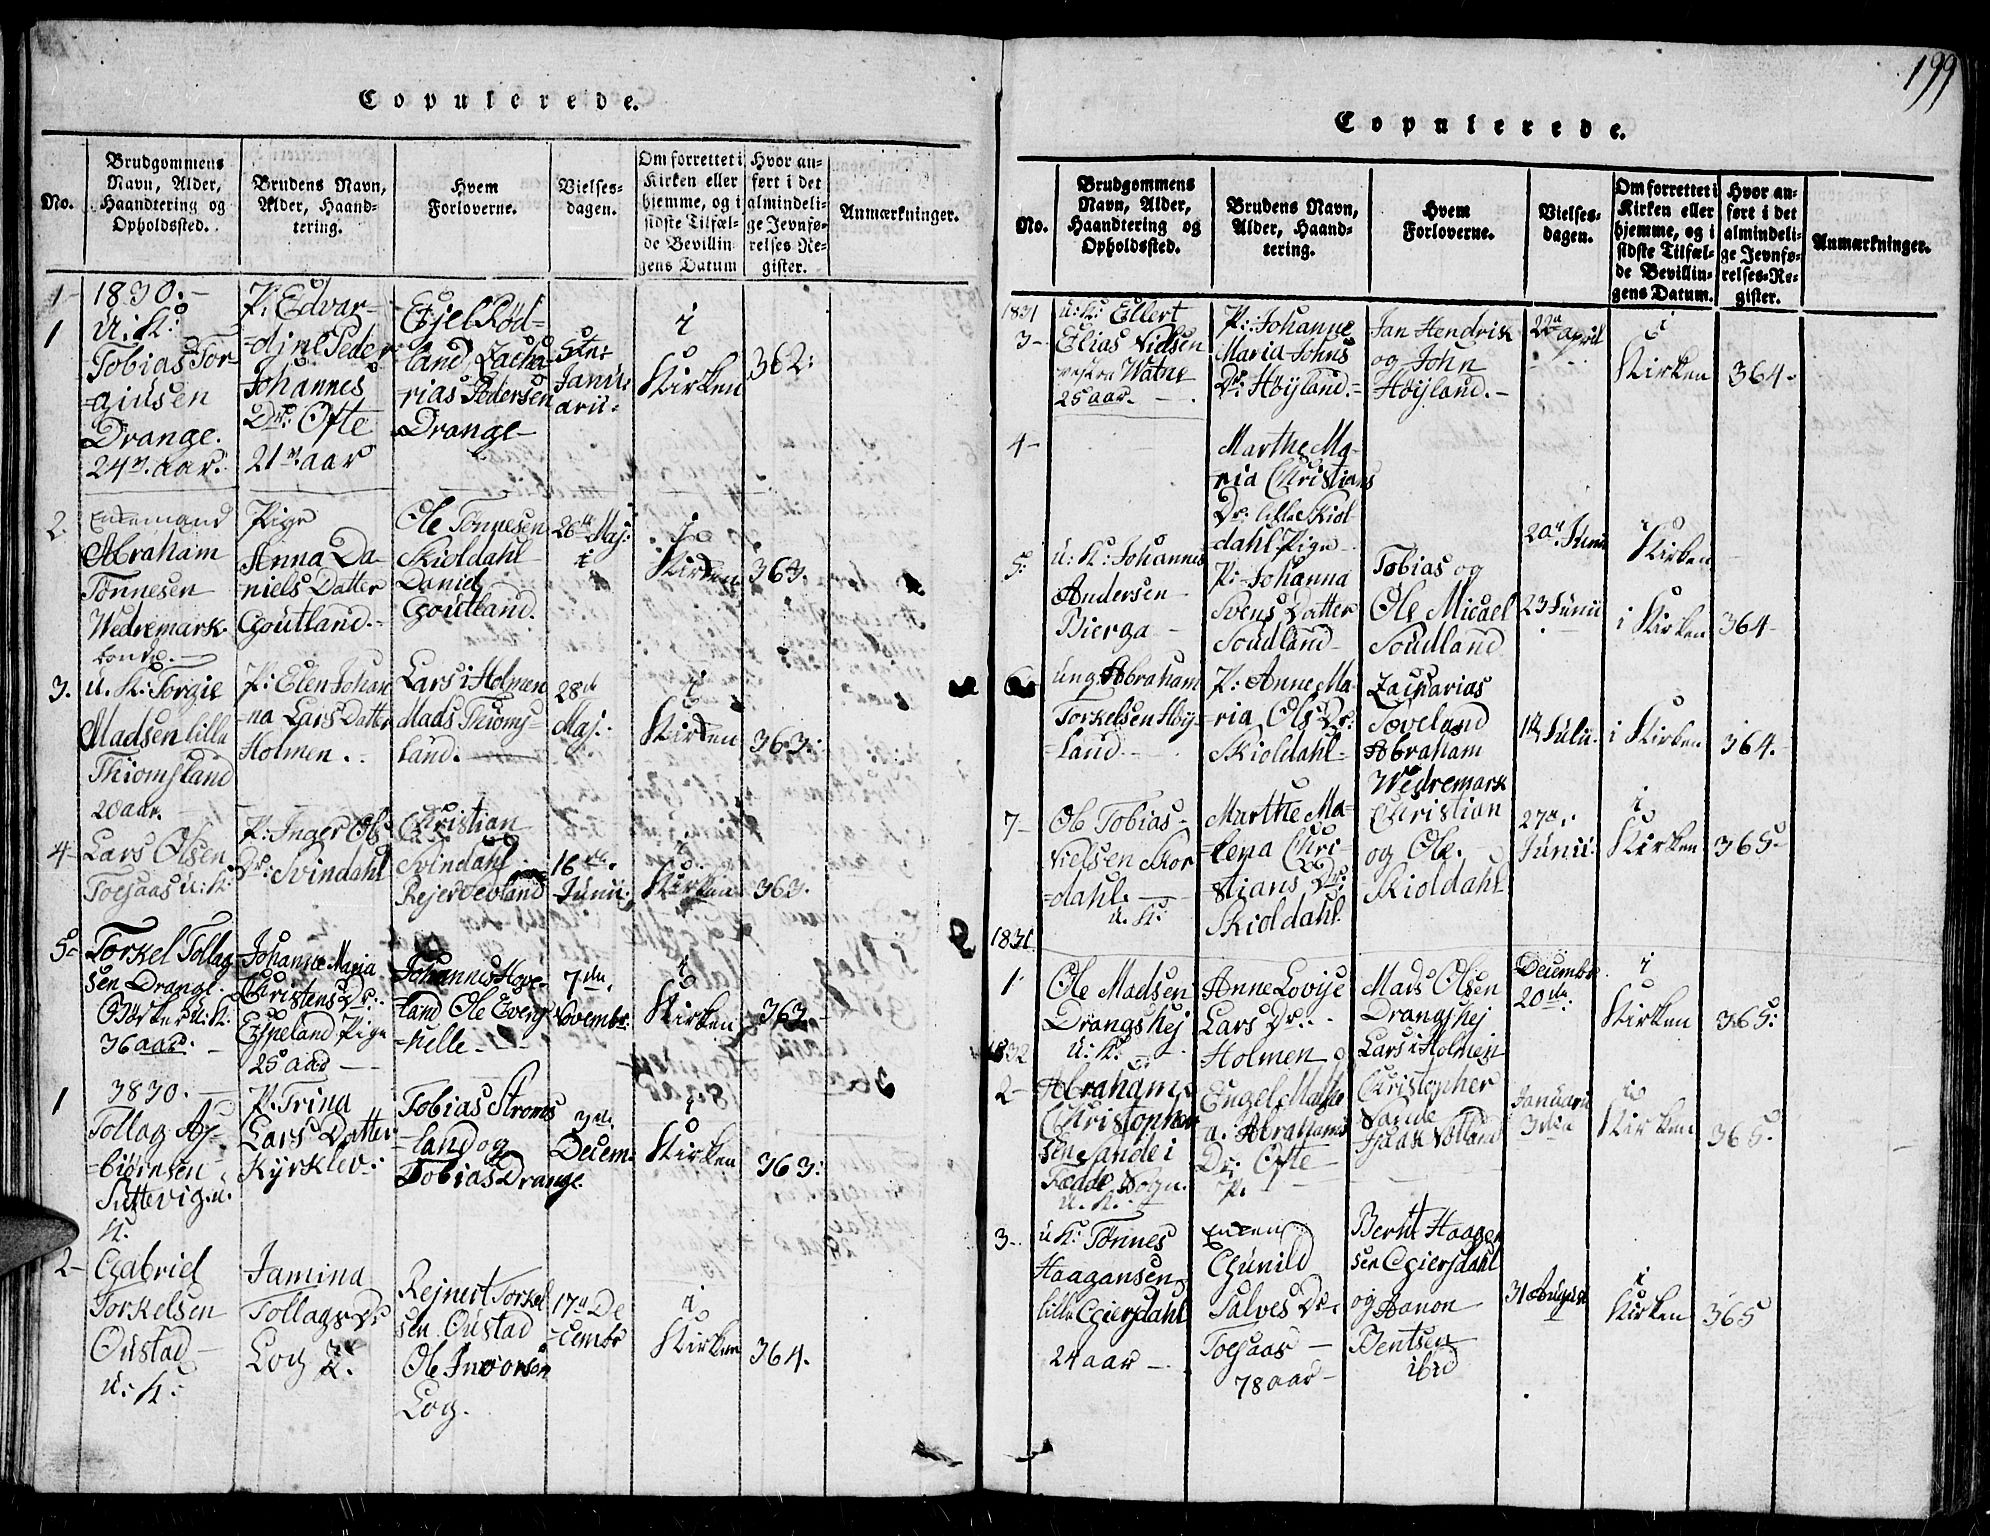 199
Copulerede.
No.
Brudgommens
Navn, Alder,
Haandtering og
Opholdssted.
Brudens Navn,
Alder, Haand-
tering.
Hvem
Forloverne.
Vielses-
dagen.
Om forrettet i
Kirken eller
hjemme, og i
sidste Tilfæl-
de Bevillin-
gens Datum
Hvor an-
ført i det
almindeli-
ge Jevnfø-
relses-Re-
gister.
Anmærkninger.
1-
1830.-
1
u: K:
Tobias Tor-
giusen
Drange.
24 aar.
P: Edvar-
dine Peder
Johannes
Dr: Ofte
21 aar
Ejel Rød-
land Zacha-
rias Pedersen
Drange-
5te
Janu-
arii-
i
Kirken
362:
2.
Enkemand
Abraham
Tønnesen
Wedremark
Pige
Anna Da-
niels Datter
Goutland.-
Ole Tønnesen
Skioldahl
Daniel
Goutland.
26 Maj:
i
Kirken
363.
3.
u. K: Torgie
Madsen lille
Thiomsland
20 aar.
P: Elen Johan
na Lars Datter
Holmen..
Lars i Holmen
Mads Thioms-
land.
28de
Maj.
i
Kirken
363:
4-
Lars Olsen
Toesaas u: K:
P: Inger Ols
Dr: Svindahl
Christian
Svindahl og
Rejer
16de
Junii
i
Kirken
363.
5-
Torkel Tollag
sen Drange-
u: K:
36 aar.-
Johanne Maria
Christens Dr:
Espeland Pige
25 aar-
Johannes Hove-
land Ole Evens
helle-
7de
Novembr.
i
Kirken
363-
3830.-
1
Tollag As-
biørnsen-
Sittevig. u.
K.
P: Trina
Lars Datter
Kyrklev:
Tobias Stroms
land og
Tobias Drange.
3de
Decem.
i
Kirken
363:
2-
Gabriel
Torkelsen
Oustad-
u: K:
Jamina
Tollags Dr
Log P.
Rejnert Torkel
sen Oustad
Ole
Log.
17 De
cembr
i
Kirken
364.
Copulerede.
No.
Brudgommens
Navn, Alder,
Haandtering og
Opholdssted.
Brudens Navn,
Alder, Haand-
tering.
Hvem
Forloverne.
Vielses-
dagen.
Om forrettet i
Kirken eller
hjemme, og i
sidste Tilfæl-
de Bevillin-
gens Datum.
Hvor an-
ført i det
almindeli-
ge Jevnfø-
relses-Re-
gister.
Anmærkninger.
1831
3-
u: K: Ellert
Elias Nielsen
Watne
25 aar.-
P: Johanne
Maria Johns
Dr: Høyland.-
Jan Hendrik
og John
Høyland.-
22 April
i
Kirken
364-
4-
Marthe Ma-
ria Christians
Dr: lille Skiol
dahl Pige
20 Junii
i
Kirken
5:
u: K: Johannes
Andersen-
Bierga-
P: Johanna
Svens Datter
Soudland-
Tobias og
Ole Micael
Soudland
23 Junii
i Kirken
364-
6
ung Abraham
Torkelsen Høy-
land.-
P: Anne Ma-
ria Ols Dr.
Skioldahl-
Zacharias
Jøveland
Abraham
Wedremark
1 Julii.
i Kirken
364.-
7-
Ole Tobias-
Nielsen Skor
dahl.-
u. K:
Marthe Ma-
lena Chri-
stians Dr:
Skioldahl.
Christian
og Ole.-
Skioldahl
27
Junii:
i
Kirken
365-
1831.
1-
Ole Madsen
Drangshej
u: K:
Anne Lovise
Lars Dr:.
Holmen
Mads Olsen
Drangshej
Lars i Holmen
Decembr.
20de.
i
Kirken
365:
1832
2-
Abraham
Christopher
sen Sande i
Fædde Sogn.
u. K:
Engel Malen
a. Abrahams
Dr: Ofte-
P.
Christopher
Sande
Isaak Nolland
Januarii
3die
i
Kirken
365.
3-
u K: Tønnes
Haagansen
lille Giersdahl
24 aar-
Enken
Gunild
Salves Dr:
Toesaas-
78 aar-
Bernt Haagen
sen Giersdahl
og Aanon
Bentsen
ibid
31 August
i
Kirken
365